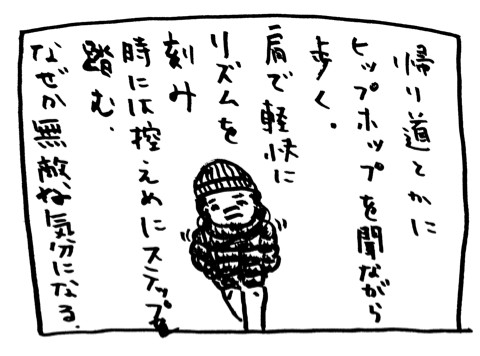 帰り道とかに
ヒップホップを聞ながら
歩く。
肩で軽快に
リズムを
刻み
時には控えめにステップを
踏む、
なぜか無敵な気分になる。